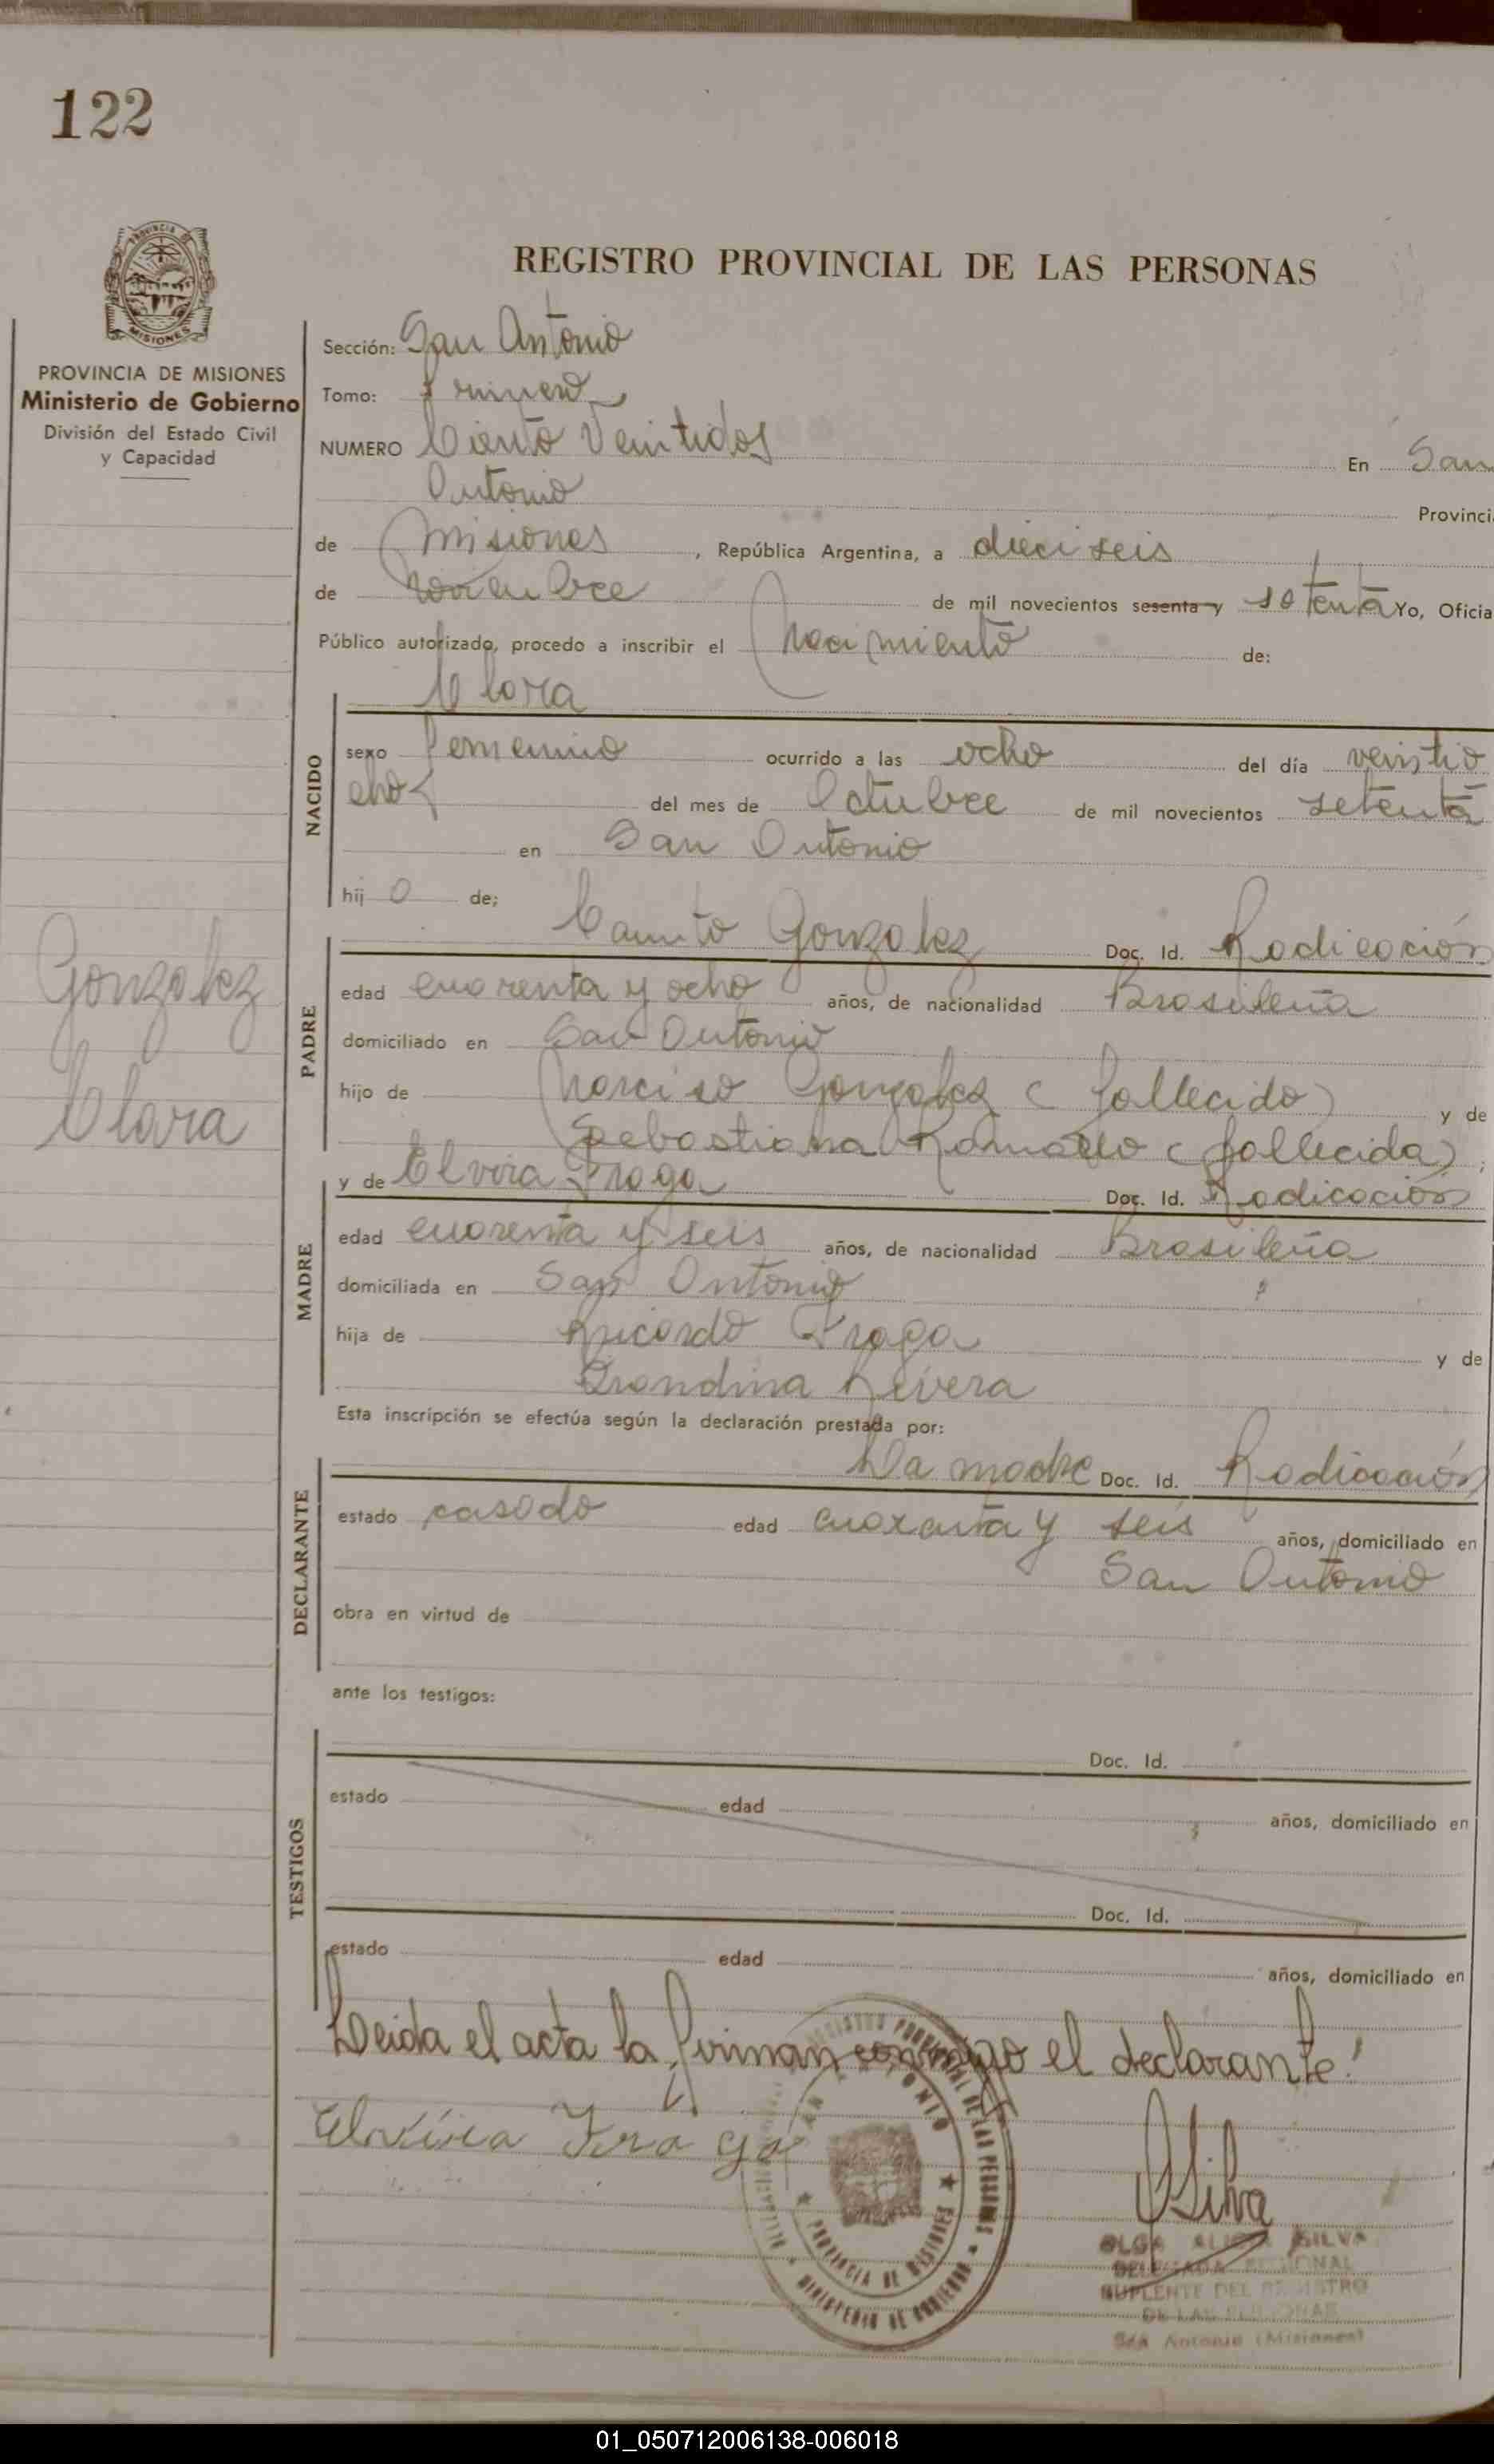 122
PROVINCIA DE MISIONES
Ministerio de Gobierno
División del Estado Civil
y Capacidad
REGISTRO PROVINCIAL DE LAS PERSONAS
Sección: San Antonio
Tomo: Primero
NUMERO Ciento Venitidos En San
Antonio Provinci
de Misiones, República Argentina, a dieci seis
de Noviembre de mil novecientos sesenta y setenta Yo, Oficia
Público autorizado, procedo a inscribir el Nacimiento de:
Clara
NACIDO
sexo femenino ocurrido a las ocho del día venitio
cho del mes de Octubre de mil novecientos setenta
en San Antonio
hij o de;
Gonzalez
Clara
PADRE
Gonzalez Doc. Id. Radicación
edad cuarenta y ocho años, de nacionalidad Brasileña
domiciliado en San Antonio
hijo de Narciso Gonzalez (fallecido) y de
Sebastiana (fallecida);
MADRE
y de Elvira Fraga Doc. Id. Radicación
edad cuarenta y seis años, de nacionalidad Brasileña
domiciliada en San Antonio
hija de Ricardo Fraga y de
Rivera
Esta inscripción se efectúa según la declaración prestada por:
DECLARANTE
La madre Doc. Id. Radicación
estado casado edad cuarenta y seis años, domiciliado en
San Antonio
obra en virtud de
ante los testigos:
TESTIGOS
Doc. Id.
estado edad años, domiciliado en
Doc. Id.
estado edad años, domiciliado en
Leida el acta la firman conmigo el declarante!
Elvira Fraga
REGISTRO PROVINCIAL DE LAS PERSONAS
SAN ANTONIO
PROVINCIA DE MISIONES
MINISTERIO DE GOBIERNO
OSilva
OLGA ALICIA SILVA
DELEGADA REGIONAL
SUPLENTE DEL REGISTRO
DE LAS PERSONAS
San Antonio (Misiones)
01_050712006138-006018